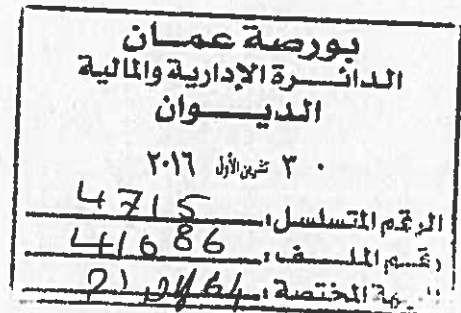 بورصة عمان
الدائرة الإدارية والمالية
الديوان
٠٣ تشرين الأول ٢٠١٦
الرقم المتسلسل: 4715
رقم الملف: 41686
الجهة المختصة: